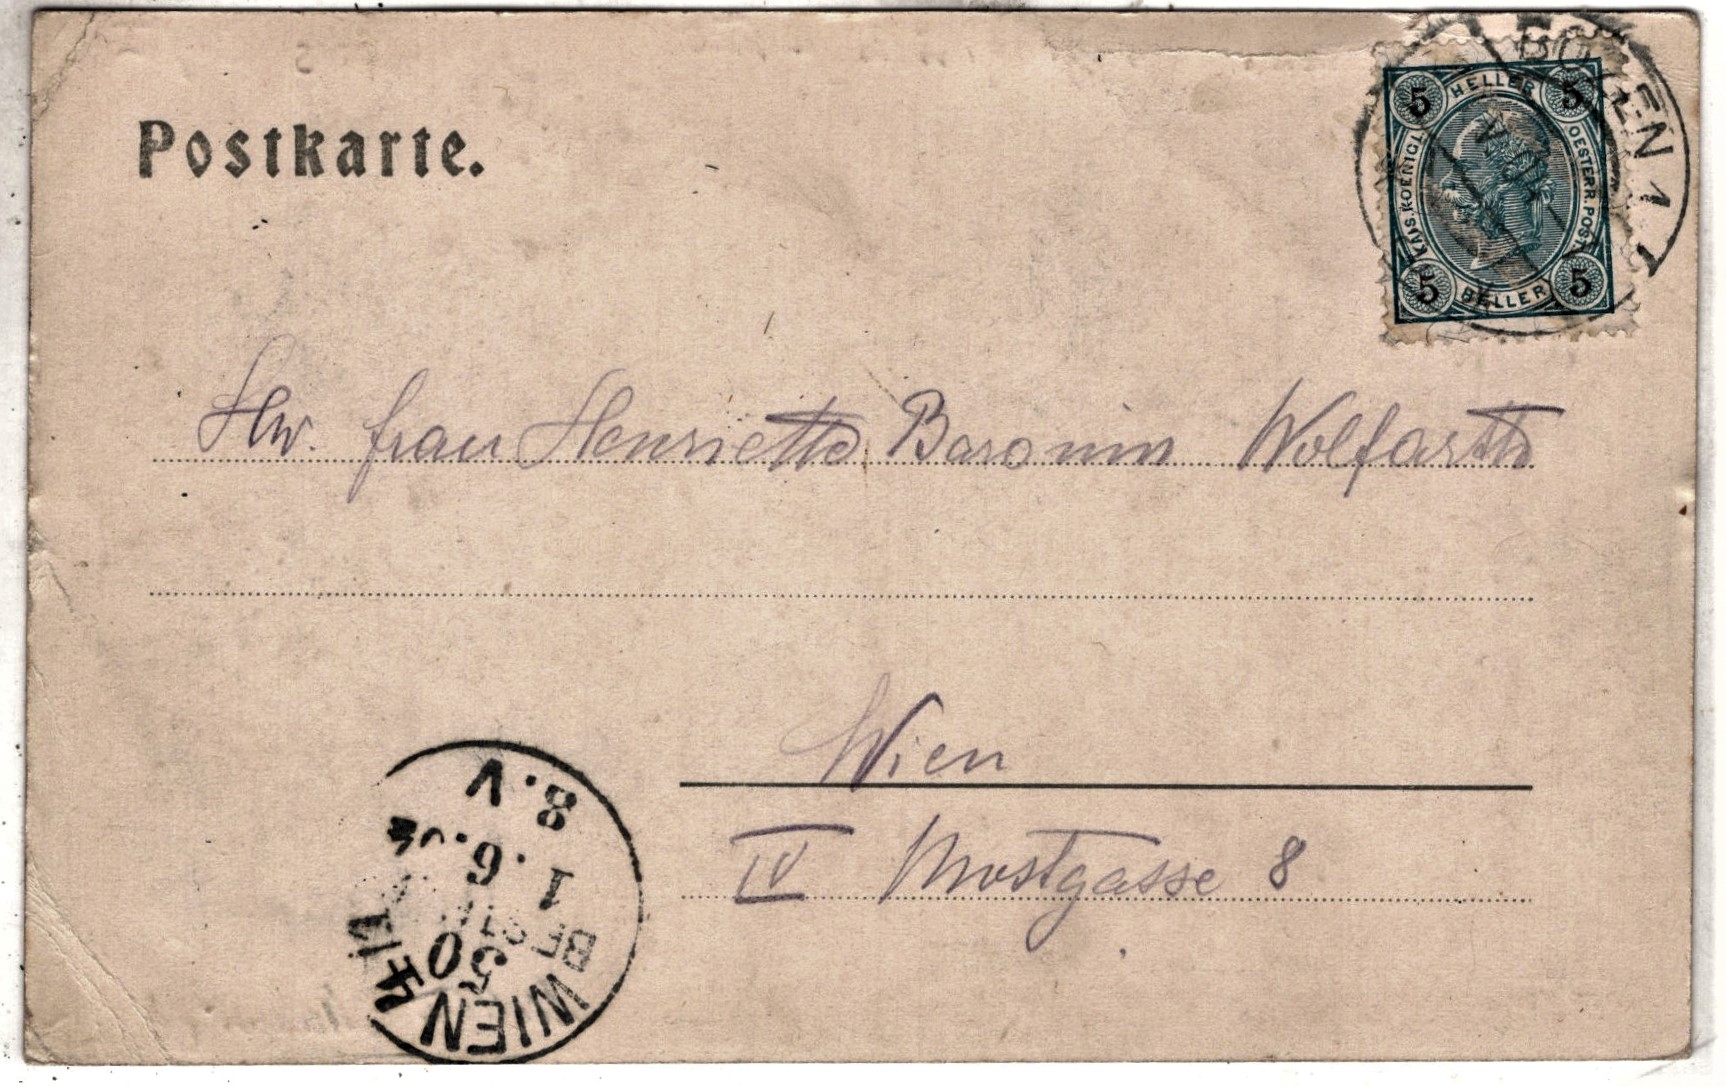 Postkarte.
HELLER
5 5
KAIS. KOENIGL. OESTERR. POST.
5 5
HELLER
BOZEN 1
V.
Frau Henriette Baronin Wolfarth
Wien
IV Mostgasse 8
WIEN 4
50
BESTELLT
1
8.V